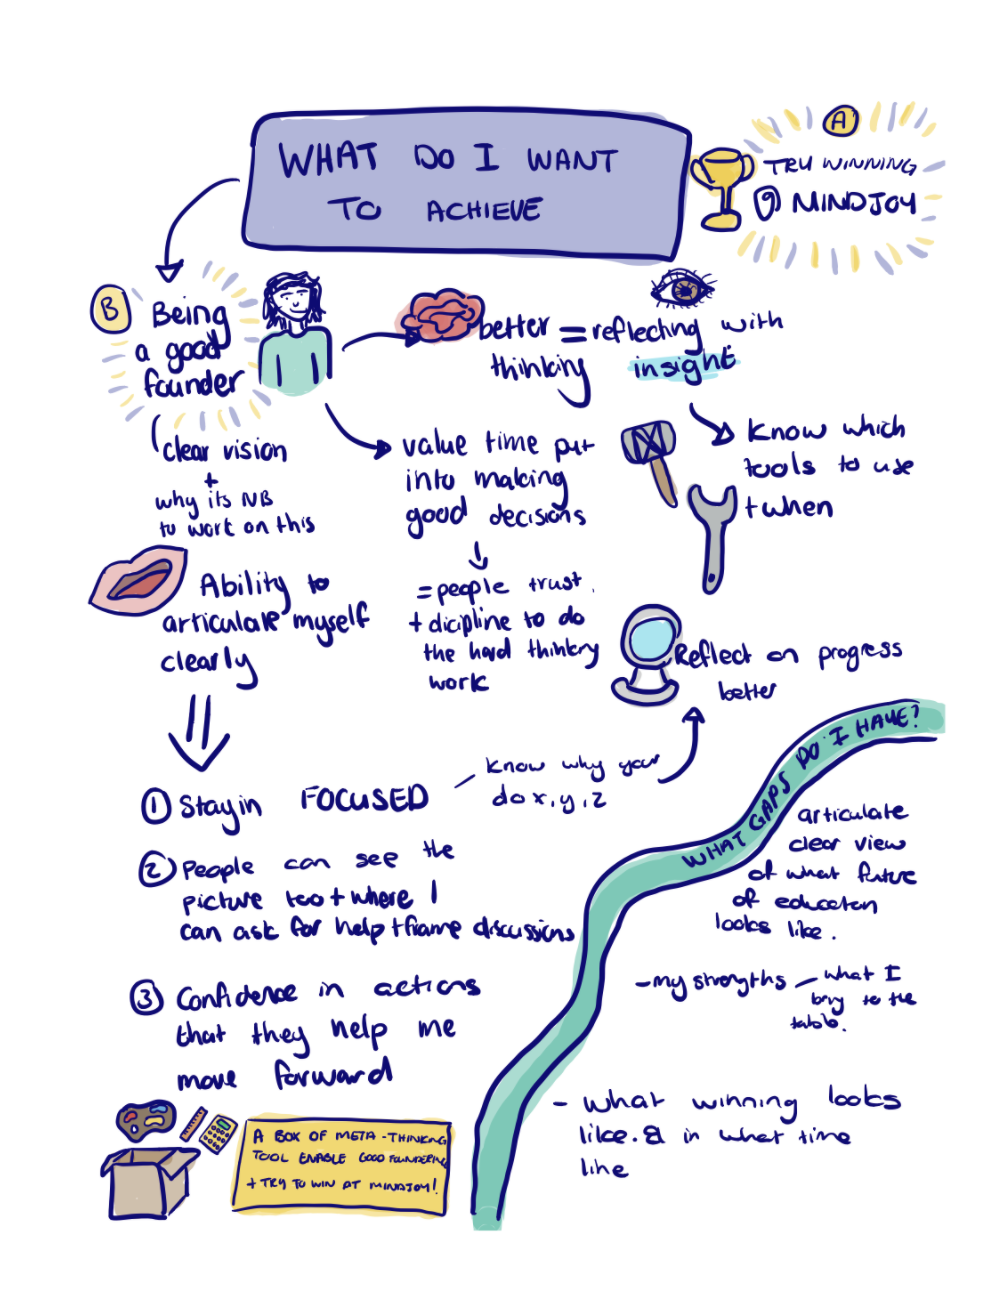 WHAT DO I WANT
TO ACHIEVE
A
TRY WINNING
@ MINDJOY
B
Being
a good
founder
clear vision
+
why its NB
to work on this
Ability to
articulate myself
clearly
better = reflecting with
thinking insight.
value time put
into making
good decisions
= people trust.
+ dicipline to do
the hard thinking
work
Know which
tools to use
+ when
Reflect on progress
better
Know why your
do x, y, z
1 Stayin FOCUSED
2 People can see the
picture too + where I
can ask for help + frame discussions
3 Confidence in actions
that they help me
move forward
A BOX OF META-THINKING
TOOL ENABLE GOOD FOUNDERING
+ TRY TO WIN AT MINDJOY!
WHAT GAPS DO I HAVE?
articulate
clear view
of what future
of education
looks like.
- my strengths - what I
bring to the
table.
- what winning looks
like. & in what time
line